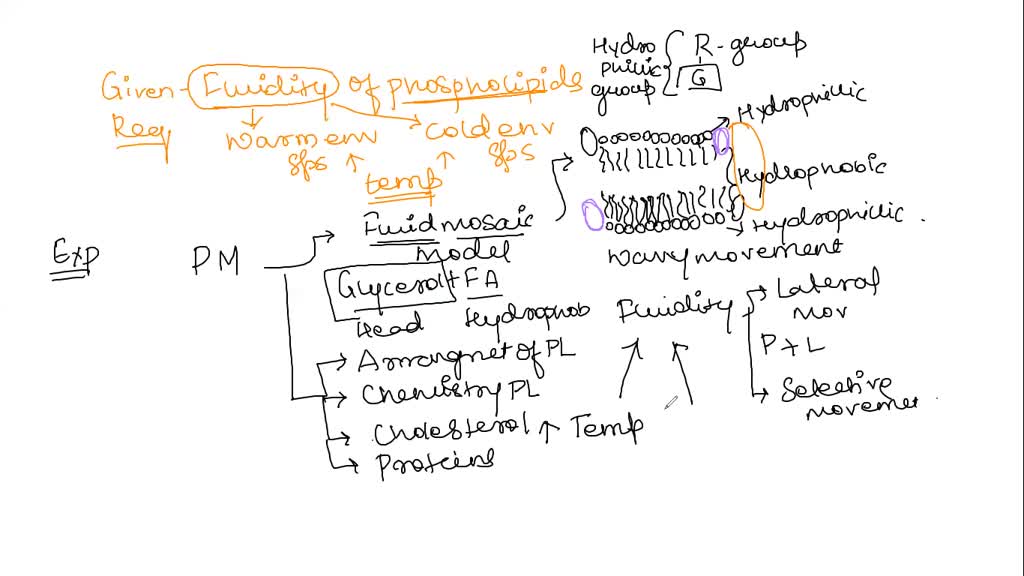 Hydro
philic
group
R-group
G
Given - Fluidity of phospholipids
Hydrophillic
Req
Warm env
sps
cold env
sps
temp
Hydrophobic
Fluid mosaic
model
Hydrophillic .
Wavy movement
Exp
PM
Glycerol + FA
Head
Hydrophob
Fluidity
Lateral
mov
P + L
Selective
movemen .
Arrangnet of PL
Chemistry PL
Cholesterol ↑ Temp
Proteins